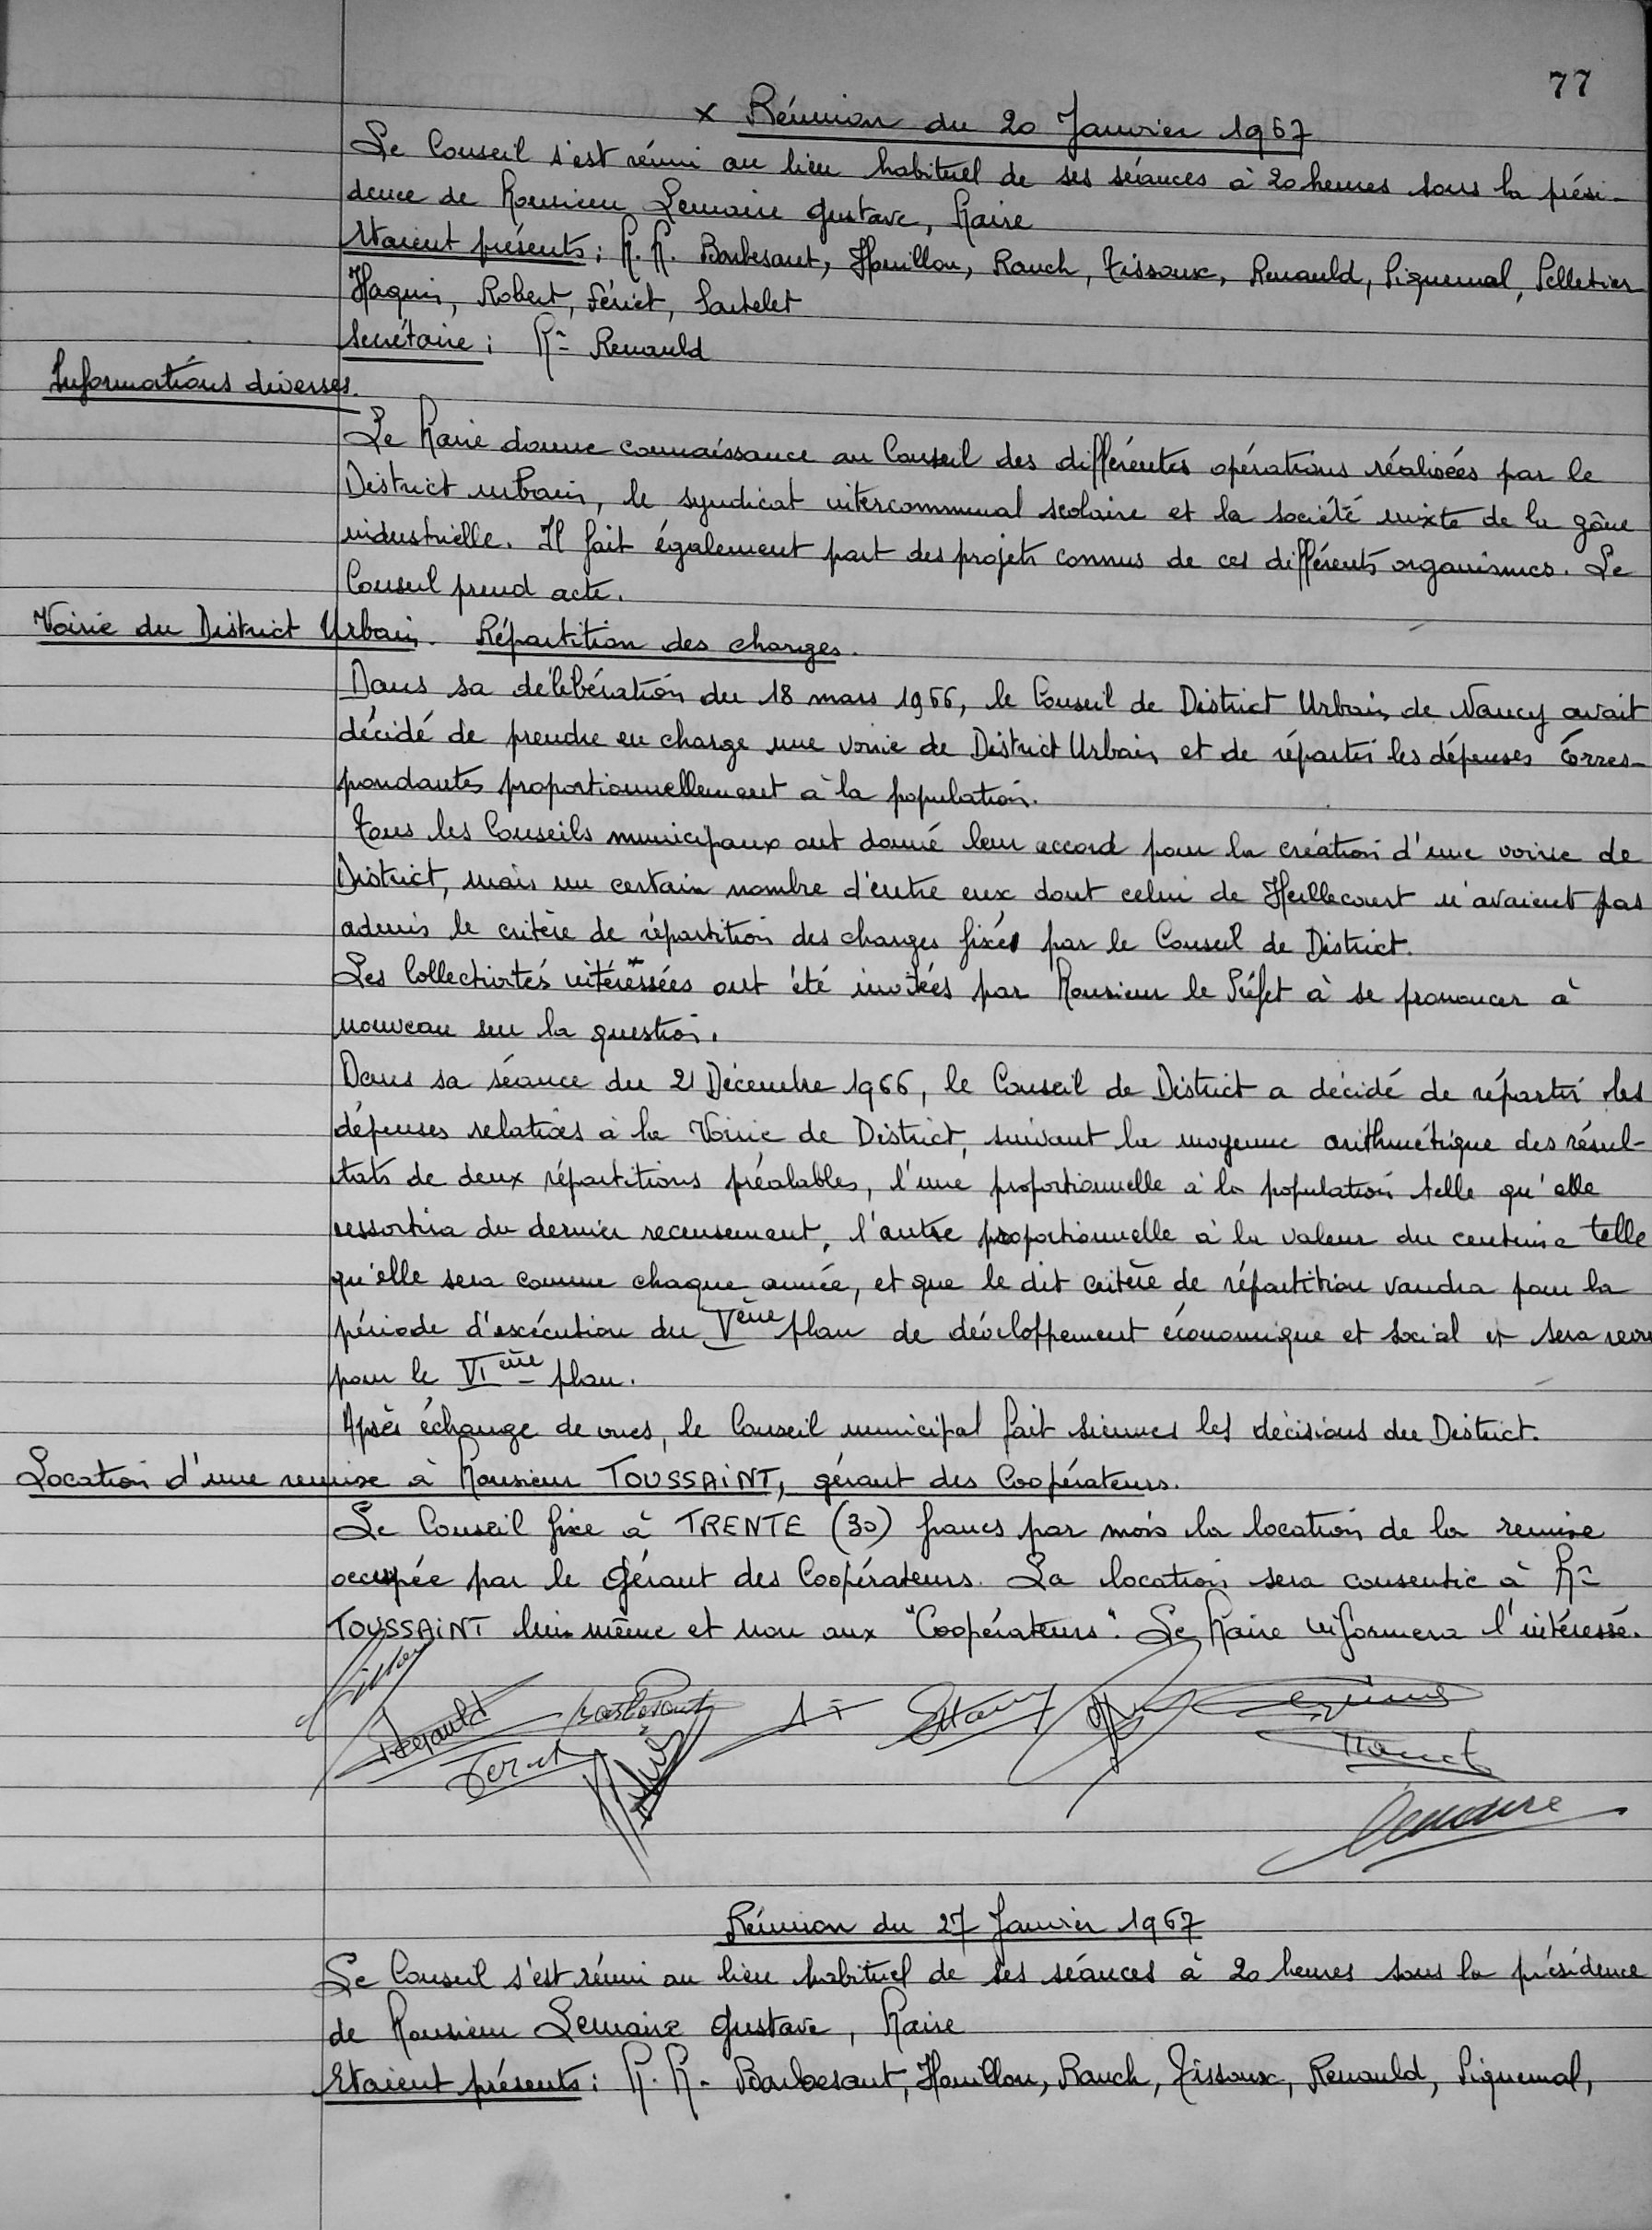 77
x Réunion du 20 Janvier 1967
Le Conseil s'est réuni au lieu habituel de ses séances à 20 heures sous la prési-
dence de Monsieur Lemaire Gustave, Maire
Etaient présents : M.M. Barbesant, Houillon, Rauch, Tissoux, Renauld, Piquemal, Pelletier
Haquin, Robert, Fériet, Sartelet
Secrétaire : Mr Renauld
Informations diverses.
Le Maire donne connaissance au Conseil des différentes opérations réalisées par le
District urbain, le syndicat intercommunal scolaire et la société mixte de la zône
industrielle. Il fait également part des projets connus de ces différents organismes. Le
Conseil prend acte.
Voirie du District Urbain. Répartition des charges.
Dans sa délibération du 18 mars 1966, le Conseil de District Urbain de Nancy avait
décidé de prendre en charge une voirie de District Urbain et de répartir les dépenses corres-
pondantes proportionnellement à la population.
Tous les Conseils municipaux ont donné leur accord pour la création d'une voirie de
District, mais un certain nombre d'entre eux dont celui de Heillecourt n'avaient pas
admis le critère de répartition des charges fixées par le Conseil de District.
Les Collectivités intéressées ont été invitées par Monsieur le Préfet à se prononcer à
nouveau sur la question.
Dans sa séance du 21 Décembre 1966, le Conseil de District a décidé de répartir les
dépenses relatives à la Voirie de District, suivant la moyenne arithmétique des résul-
tats de deux répartitions préalables, l'une proportionnelle à la population telle qu'elle
ressortira du dernier recensement, l'autre proportionnelle à la valeur du centime telle
qu'elle sera connue chaque année, et que le dit critère de répartition vaudra pour la
période d'exécution du Vème plan de développement économique et social et sera revu
pour le VIème plan.
Après échange de vues, le Conseil municipal fait siennes les décisions du District.
Location d'une remise à Monsieur TOUSSAINT, gérant des Coopérateurs.
Le Conseil fixe à TRENTE (30) francs par mois la location de la remise
occupée par le Gérant des Coopérateurs. La location sera consentie à Mr
TOUSSAINT lui-même et non aux "Coopérateurs". Le Maire informera l'intéressé.
Renauld Barbesant
Feriet
Rauch
Lemaire
Réunion du 27 Janvier 1967
Le Conseil s'est réuni au lieu habituel de ses séances à 20 heures sous la présidence
de Monsieur Lemaire Gustave, Maire
Etaient présents : M.M. Barbesant, Houillon, Rauch, Tissoux, Renauld, Piquemal,